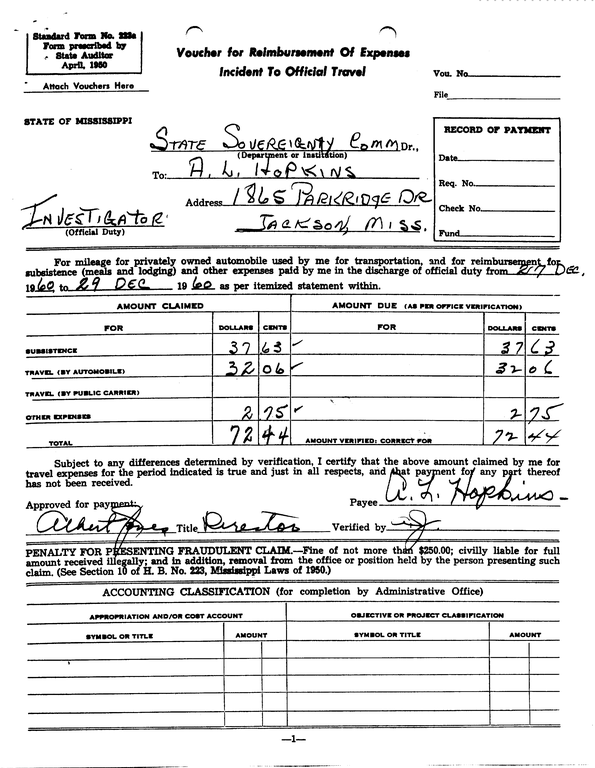 Standard Form No. 223a
Form prescribed by
State Auditor
April, 1950
Attach Vouchers Here
Voucher for Reimbursement Of Expenses
Incident To Official Travel
Vou. No.
File
STATE OF MISSISSIPPI
STATE SOVEREIGNTY COMM Dr.,
(Department or Institution)
To: A. L. HOPKINS
Address 1865 PARKRIDGE DR
JACKSON, MISS.
INVESTIGATOR
(Official Duty)
RECORD OF PAYMENT
Date
Req. No.
Check No.
Fund
For mileage for privately owned automobile used by me for transportation, and for reimbursement for
subsistence (meals and lodging) and other expenses paid by me in the discharge of official duty from DEC,
1960 to 29 DEC 1960 as per itemized statement within.
AMOUNT CLAIMED AMOUNT DUE (AS PER OFFICE VERIFICATION)
FOR DOLLARS CENTS FOR DOLLARS CENTS
SUBSISTENCE 37 63 37 63
TRAVEL (BY AUTOMOBILE) 32 06 32 06
TRAVEL (BY PUBLIC CARRIER)
OTHER EXPENSES 2 75 2 75
TOTAL 72 44 AMOUNT VERIFIED: CORRECT FOR 72 44
Subject to any differences determined by verification, I certify that the above amount claimed by me for
travel expenses for the period indicated is true and just in all respects, and that payment for any part thereof
has not been received.
Payee A. L. Hopkins
Approved for payment:
Albert Jones Title Director Verified by
PENALTY FOR PRESENTING FRAUDULENT CLAIM.—Fine of not more than $250.00; civilly liable for full
amount received illegally; and in addition, removal from the office or position held by the person presenting such
claim. (See Section 10 of H. B. No. 223, Mississippi Laws of 1950.)
ACCOUNTING CLASSIFICATION (for completion by Administrative Office)
APPROPRIATION AND/OR COST ACCOUNT OBJECTIVE OR PROJECT CLASSIFICATION
SYMBOL OR TITLE AMOUNT SYMBOL OR TITLE AMOUNT
—1—